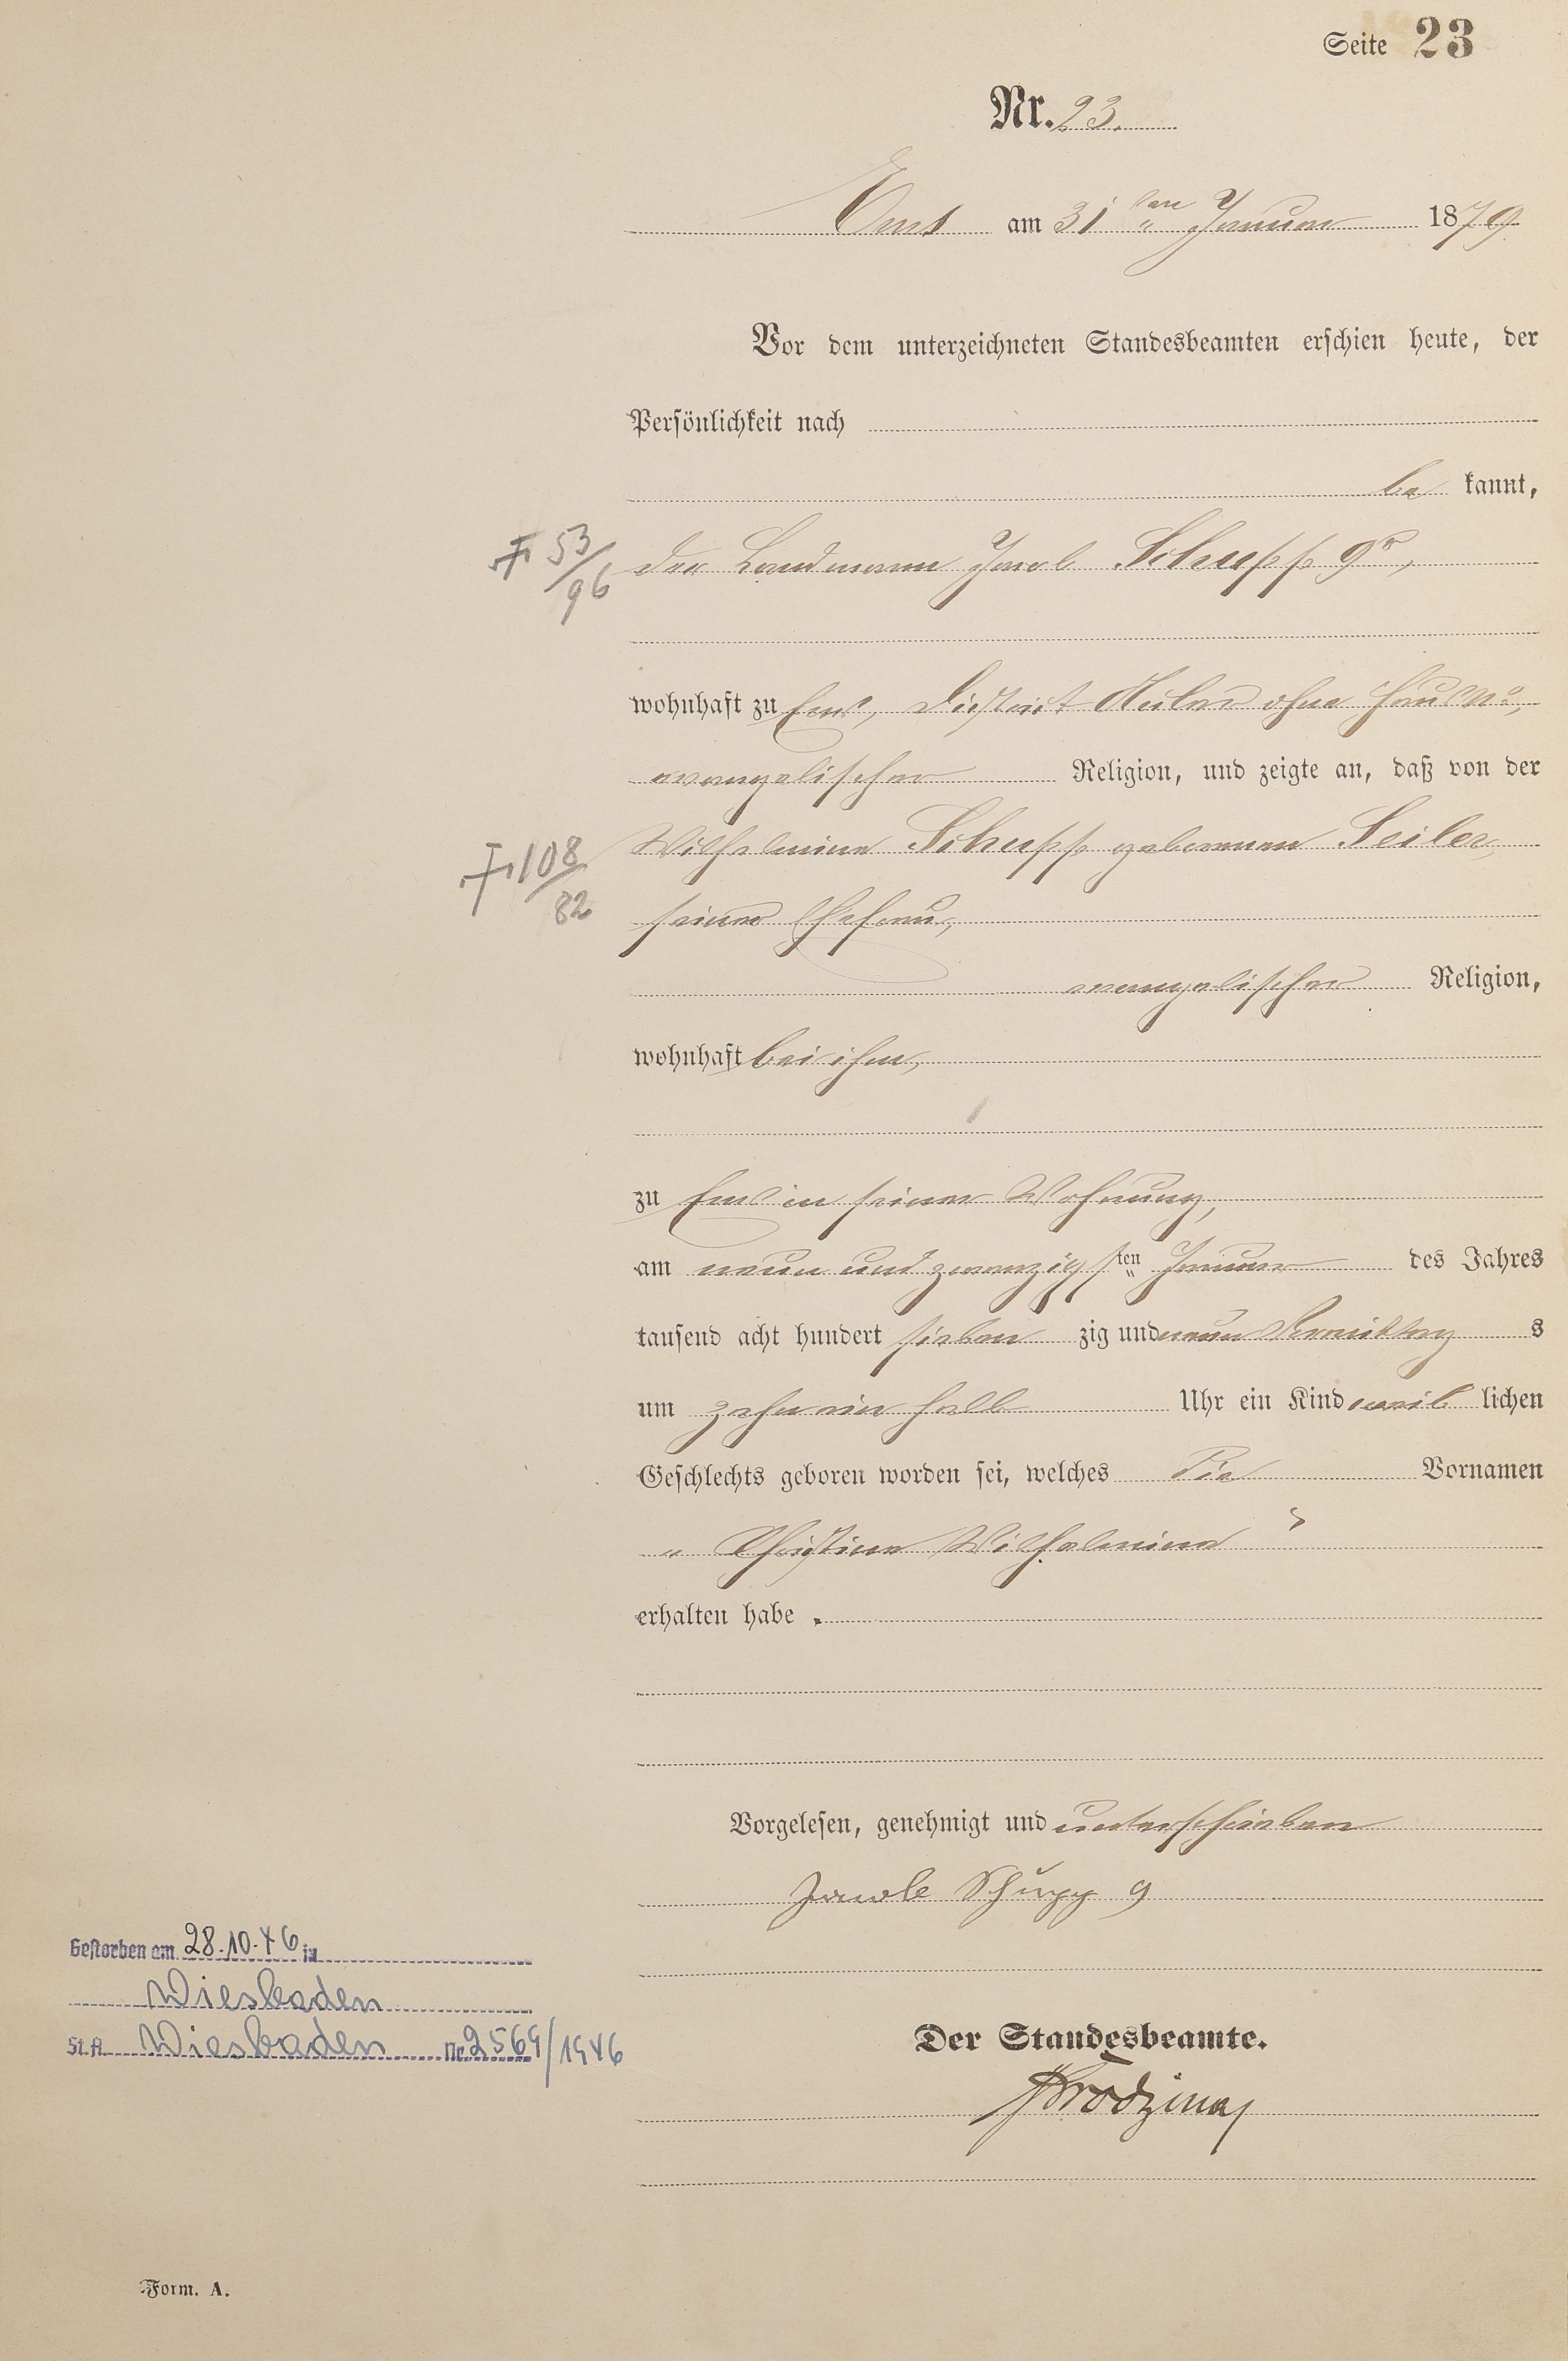 Seite 23
Nr. 23.
Ems am 31ten Januar 1879
Vor dem unterzeichneten Standesbeamten erschien heute, der
Persönlichkeit nach
be kannt,
F 53/96
der Landmann Jacob Schupp 9r,
wohnhaft zu Ems, District ohne Haus No,
evangelischer Religion, und zeigte an, daß von der
F. 108/82
Wilhelmine Schupp geborenen Seiler,
seiner Ehefrau,
evangelischer Religion,
wohnhaft bei ihm,
zu Ems in seiner Wohnung,
am neun und zwanzigsten Januar des Jahres
tausend acht hundert sieben zig und neun Vormittag s
um zehn ein halb Uhr ein Kind weib lichen
Geschlechts geboren worden sei, welches die Vornamen
„ Christine Wilhelmine "
erhalten habe.
Vorgelesen, genehmigt und unterschrieben
Jacob Schupp 9
Gestorben am 28.10.46 in
Wiesbaden
St. A. Wiesbaden Nr. 2569/1946
Der Standesbeamte.
Form. A.